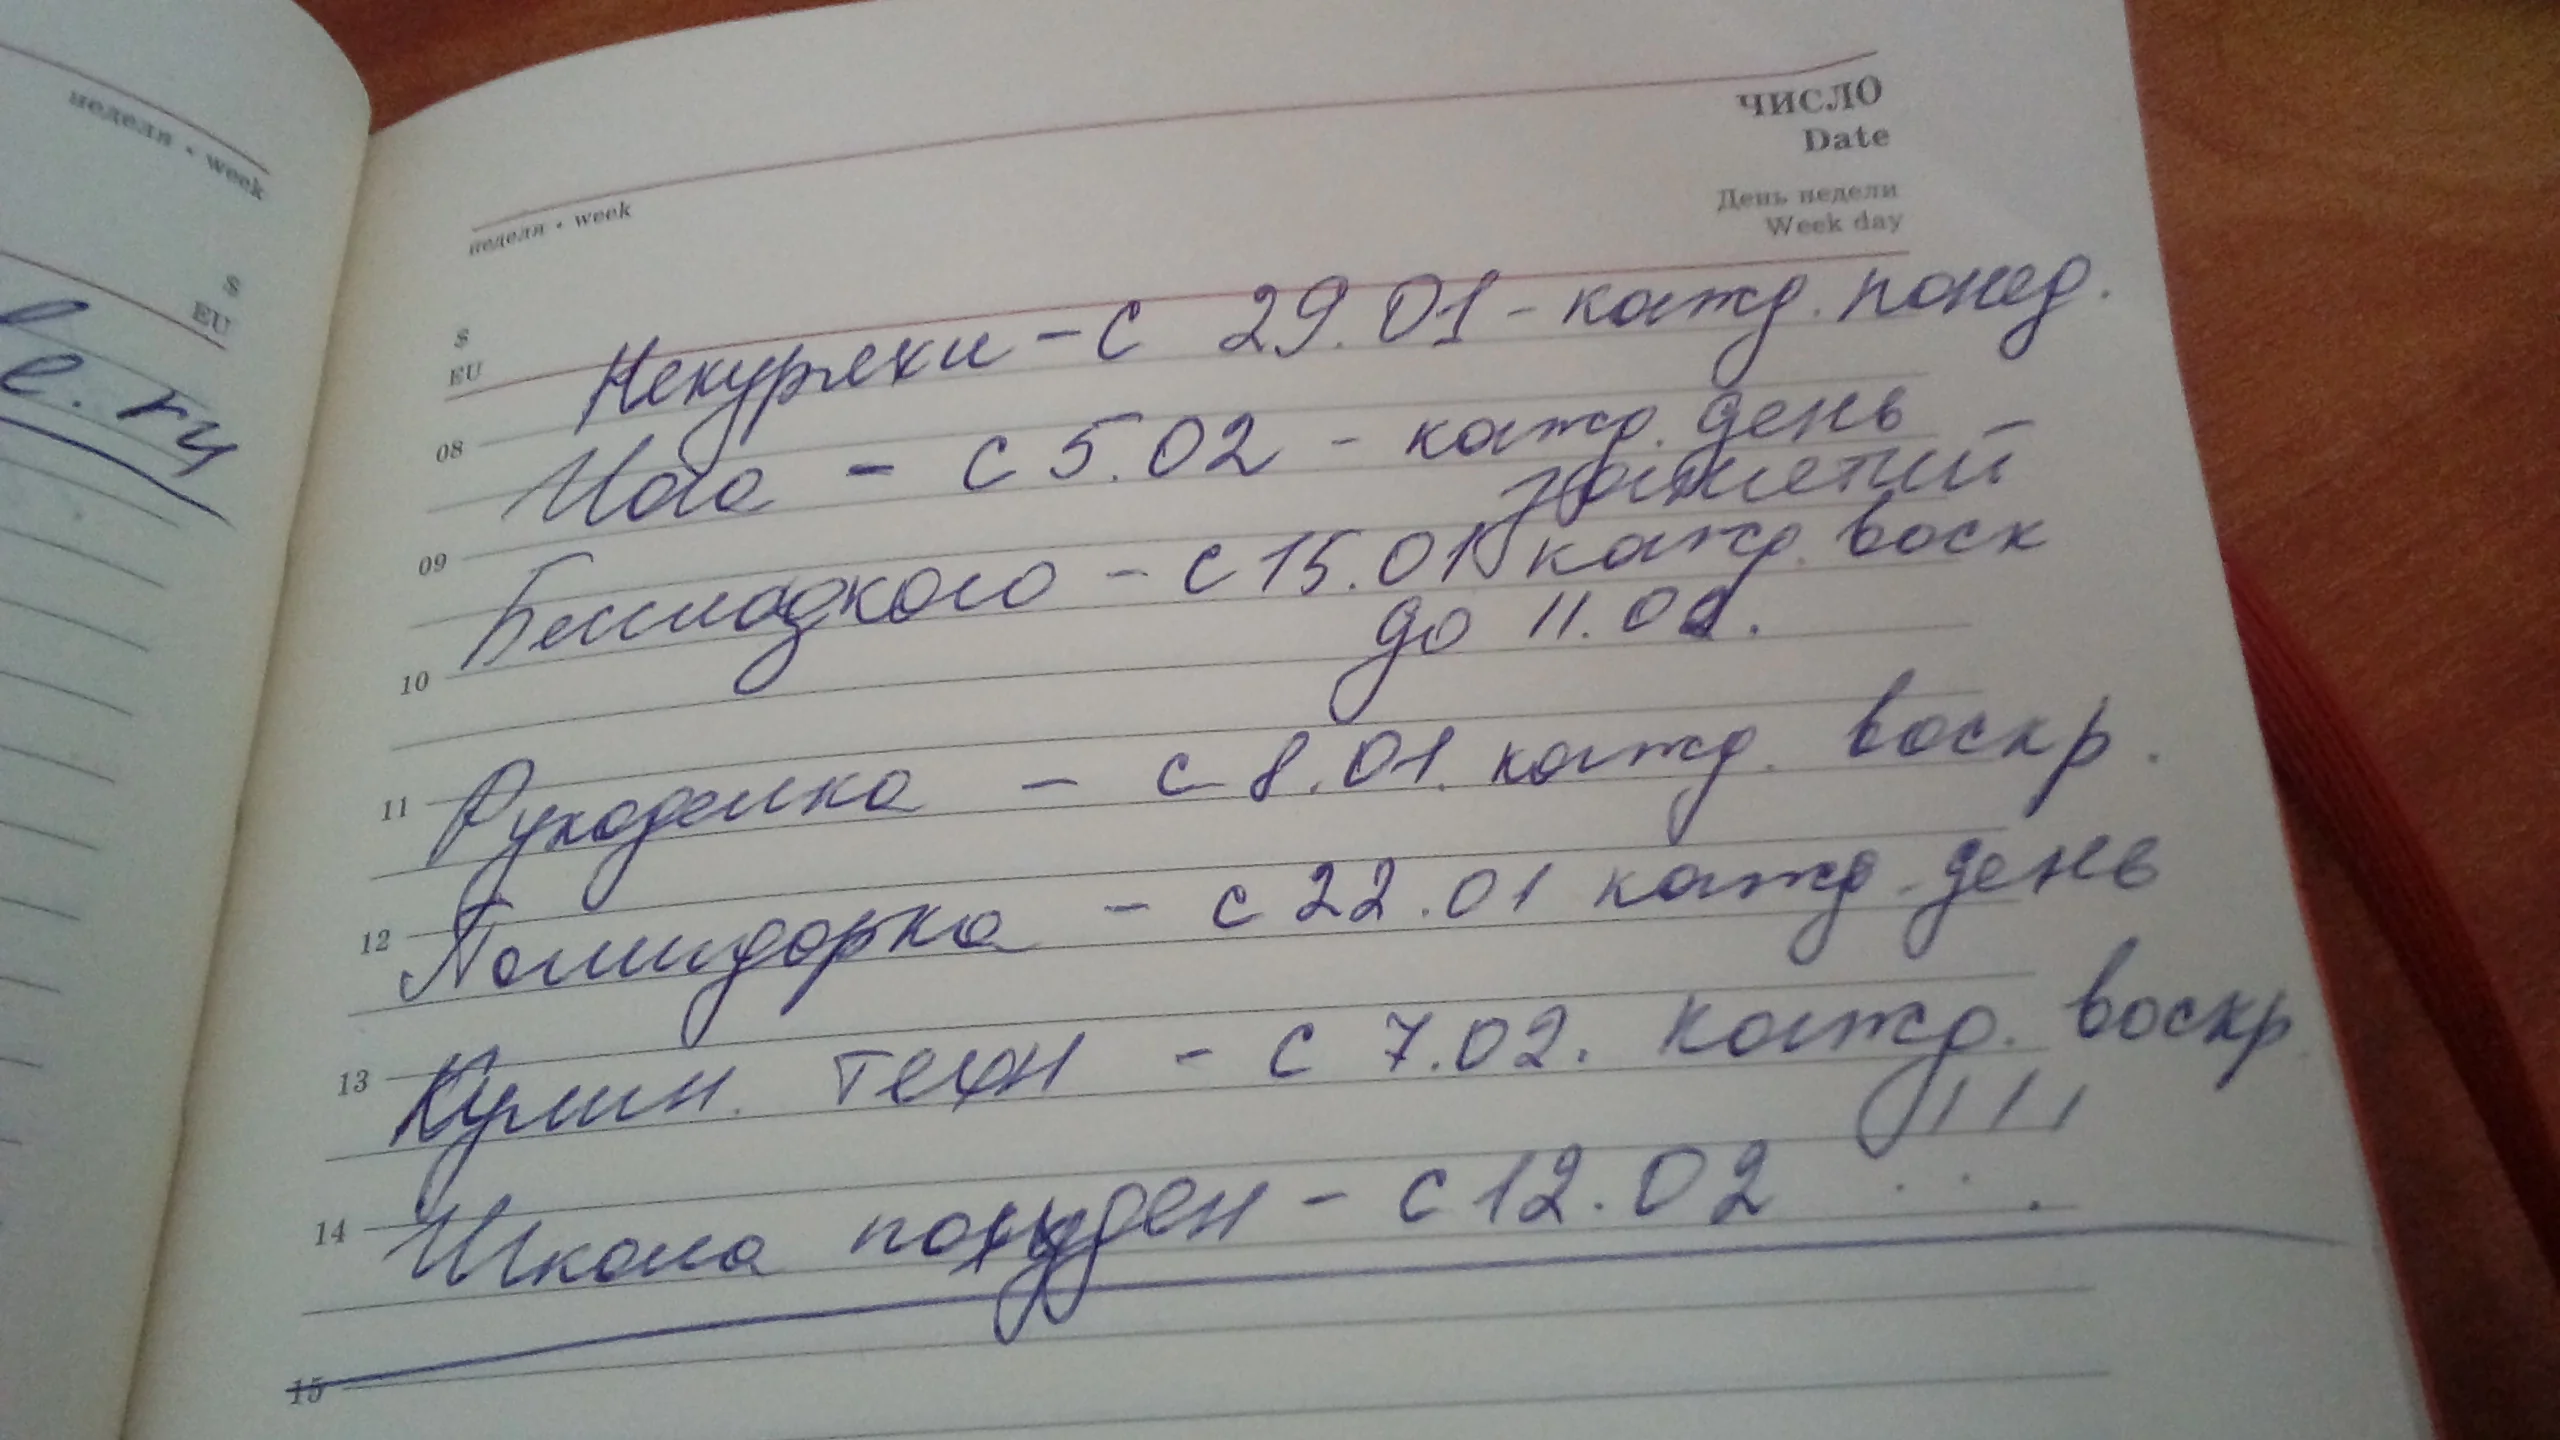 неделя • week
S
EU
е.ru
ЧИСЛО
Date
День недели
Week day
неделя • week
S
EU
Некуряхи – с 29.01 - кажд. понед.
08
Йога – с 5.02 - кажд. день –
занятий
09
Бессладкого – с 15.01 кажд. воск
до 11.02.
10
11
Рукоделка – с 8.01. кажд. воскр.
12
Помидорка – с 22.01 кажд. день
13
Кулин. техн – с 7.02. кажд. воскр
!!!
14
Школа похуден – с 12.02
15